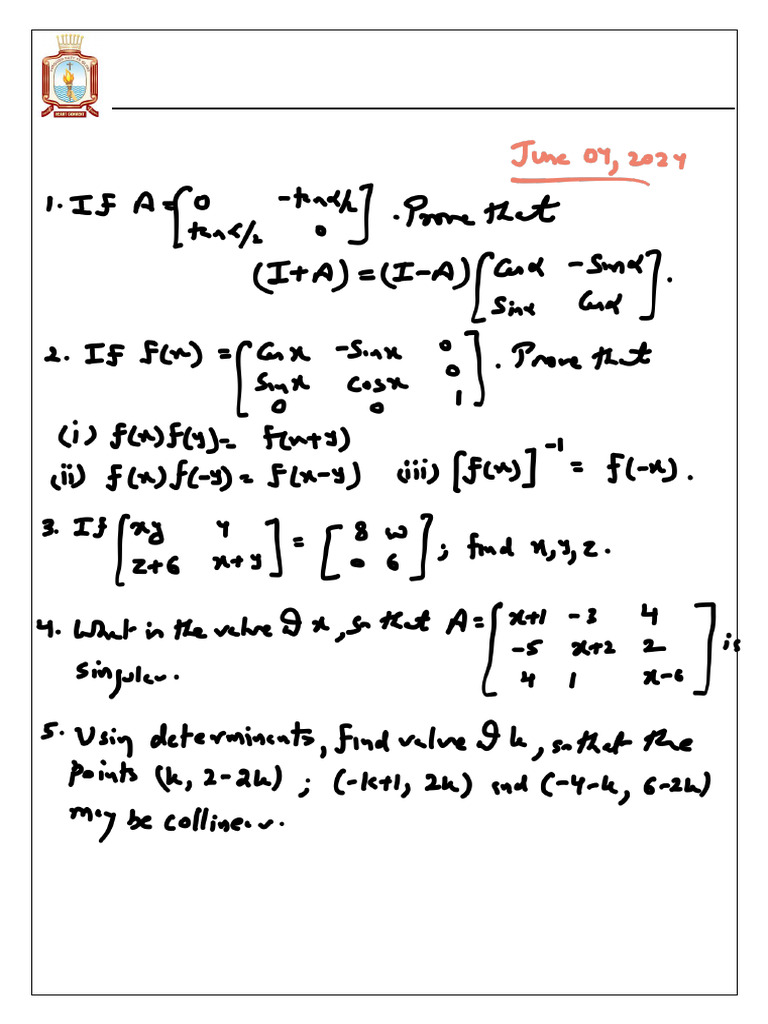 June 04, 2024
1. If A = [0 -tanα/2
tanα/2 0]. Prove that
(I+A) = (I-A) [Cosα -Sinα
Sinα Cosα].
2. If f(x) = [Cos x -Sin x 0
Sin x cos x 0
0 0 1]. Prove that
(i) f(x) f(y) = f(x+y)
(ii) f(x) f(-y) = f(x-y) (iii) [f(x)]⁻¹ = f(-x).
3. If [xy 4
z+6 x+y] = [8 w
0 6]; find x, y, z.
4. What is the value of x, so that A = [x+1 -3 4
-5 x+2 2
4 1 x-6] is
singular.
5. Using determinants, find value of k, so that the
points (k, 2-2k); (-k+1, 2k) and (-4-k, 6-2k)
may be collinear.